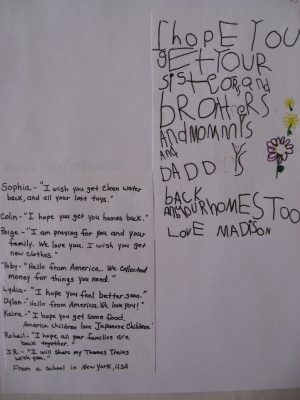 I hope YOU
gET YOUR
SiSTEORS and
bROtHERS
ANd MOMMIS
AND
DADD YS
bACK
ANdYOUR HOMES TOO
LOVE MADISON
Sophia- "I wish you get clean water
back, and all your lost toys."
Colin- "I hope you get you homes back."
Paige- "I am praying for you and your
family. We love you. I wish you get
new clothes."
Toby- "Hello from America. We collected
money for things you need."
Lydia- "I hope you feel better soon."
Dylan- "Hello from America. We love you!"
Keira- "I hope you get some food,
America children love Japanese Children"
Rohail- "I hope all your families are
back together."
J.R. - "I will share my Thomas Trains
with you."
From a school in New York, USA